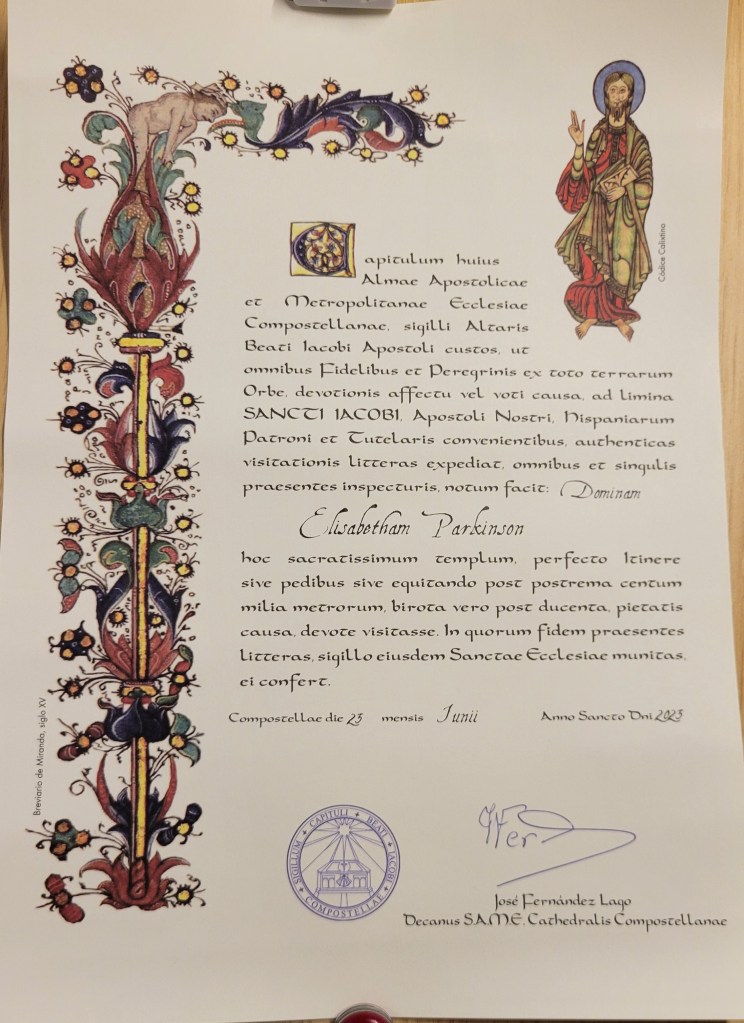 Capitulum huius
Almae Apostolicae
et Metropolitanae Ecclesiae
Compostellanae, sigilli Altaris
Beati Iacobi Apostoli custos, ut
omnibus Fidelibus et Peregrinis ex toto terrarum
Orbe, devotionis affectu vel voti causa, ad limina
SANCTI IACOBI, Apostoli Nostri, Hispaniarum
Patroni et Tutelaris convenientibus, authenticas
visitationis litteras expediat, omnibus et singulis
praesentes inspecturis, notum facit: Dominam
Elisabetham Parkinson
hoc sacratissimum templum, perfecto Itinere
sive pedibus sive equitando post postrema centum
milia metrorum, birota vero post ducenta, pietatis
causa, devote visitasse. In quorum fidem praesentes
litteras, sigillo eiusdem Sanctae Ecclesiae munitas,
ei confert.
Compostellae die 23 mensis Iunii Anno Sancto Dni 2023
Códice Calixtino
Breviario de Miranda, siglo XV
SIGILLUM CAPITULI BEATI IACOBI COMPOSTELLAE
José Fernández Lago
Decanus S.A.M.E. Cathedralis Compostellanae